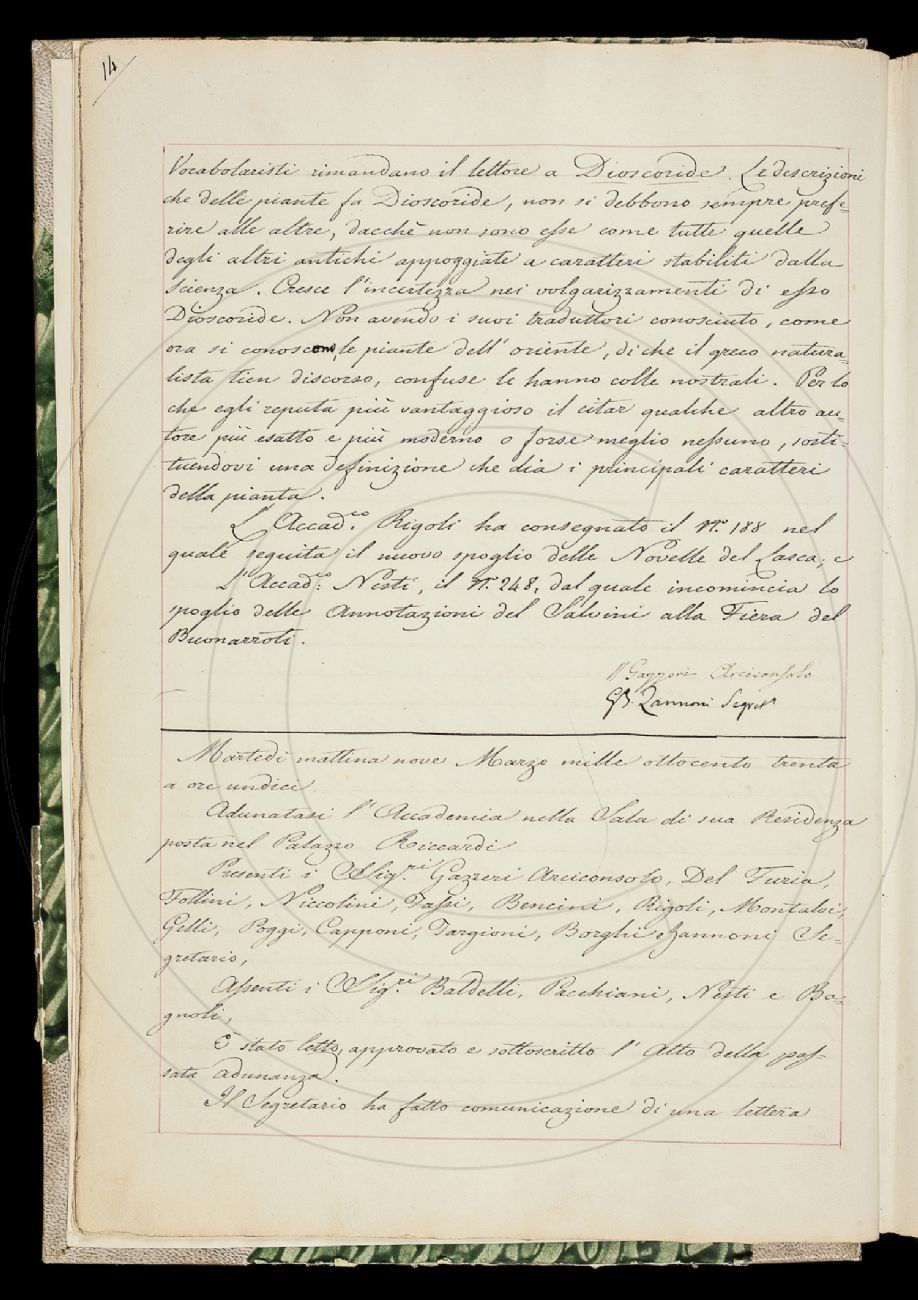 14
Vocabolaristi rimandano il lettore a Dioscoride. Le descrizioni
che delle piante fa Dioscoride, non si debbono sempre prefe=
rire alle altre, dacchè non sono esse come tutte quelle
degli altri antichi appoggiate a caratteri stabiliti dalla
scienza. Cresce l'incertezza nei volgarizzamenti di esso
Dioscoride. Non avendo i suoi traduttori conosciuto, come
ora si conoscono, le piante dell' oriente, di che il greco natura=
lista tien discorso, confuse le hanno colle nostrali. Per lo
che egli reputa più vantaggioso il citar qualche altro au=
tore più esatto e più moderno o forse meglio nessuno, sosti=
tuendovi una definizione che dia i principali caratteri
della pianta.
L'Accad.co Rigoli ha consegnato il N.o 188 nel
quale seguita il nuovo spoglio delle Novelle del Lasca; e
L'Accad.co Nesti, il N.o 248, dal quale incomincia lo
spoglio delle Annotazioni del Salvini alla Fiera del
Buonarroti.
Gazzeri Arciconsolo
GB. Zannoni Segret.o
Martedì mattina nove Marzo mille ottocento trenta
a ore undici
Adunatasi l'Accademia nella Sala di sua Residenza
posta nel Palazzo Riccardi
Presenti i Sig.ri Gazzeri Arciconsolo, Del Furia,
Follini, Niccolini, Tassi, Bencini, Rigoli, Montalvi,
Gelli, Poggi, Capponi, Targioni, Borghi e Zannoni Se=
gretario,
Assenti i Sig.ri Baldelli, Pacchiani, Nesti e Ba=
gnoli,
È stato letto, approvato e sottoscritto l' Atto della pas=
sata adunanza.
Il Segretario ha fatto comunicazione di una lettera